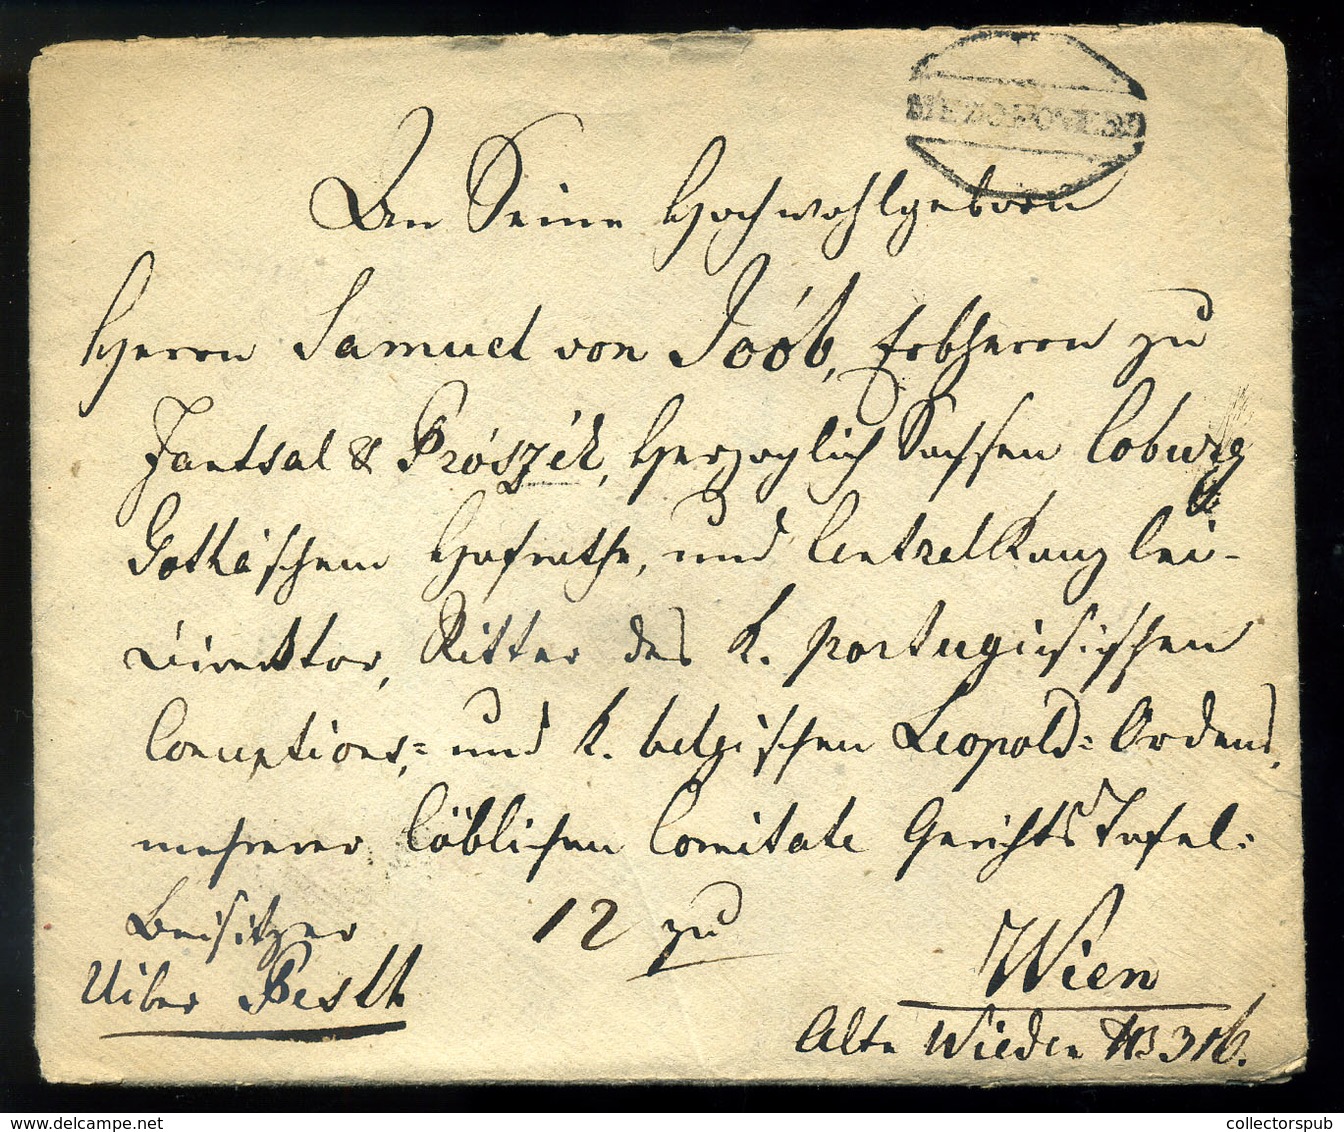 An Seine Hochwohlgeborn
Herrn Samuel von Joób, Erbherrn zu
Jantsal & Prószék, Herzoglich Sachsen Coburg
Gothaischem Hofrathe, und Centralkanzlei-
Direktor, Ritter des K. portugiesischen
Conceptions,= und K. belgischen Leopold=Ordens,
mehrerer löblichen Comitate GerichtsTafel=
Beisitzer zu
Wien
Uiber Pesth
Alte Wieden № 316.
collectorspub